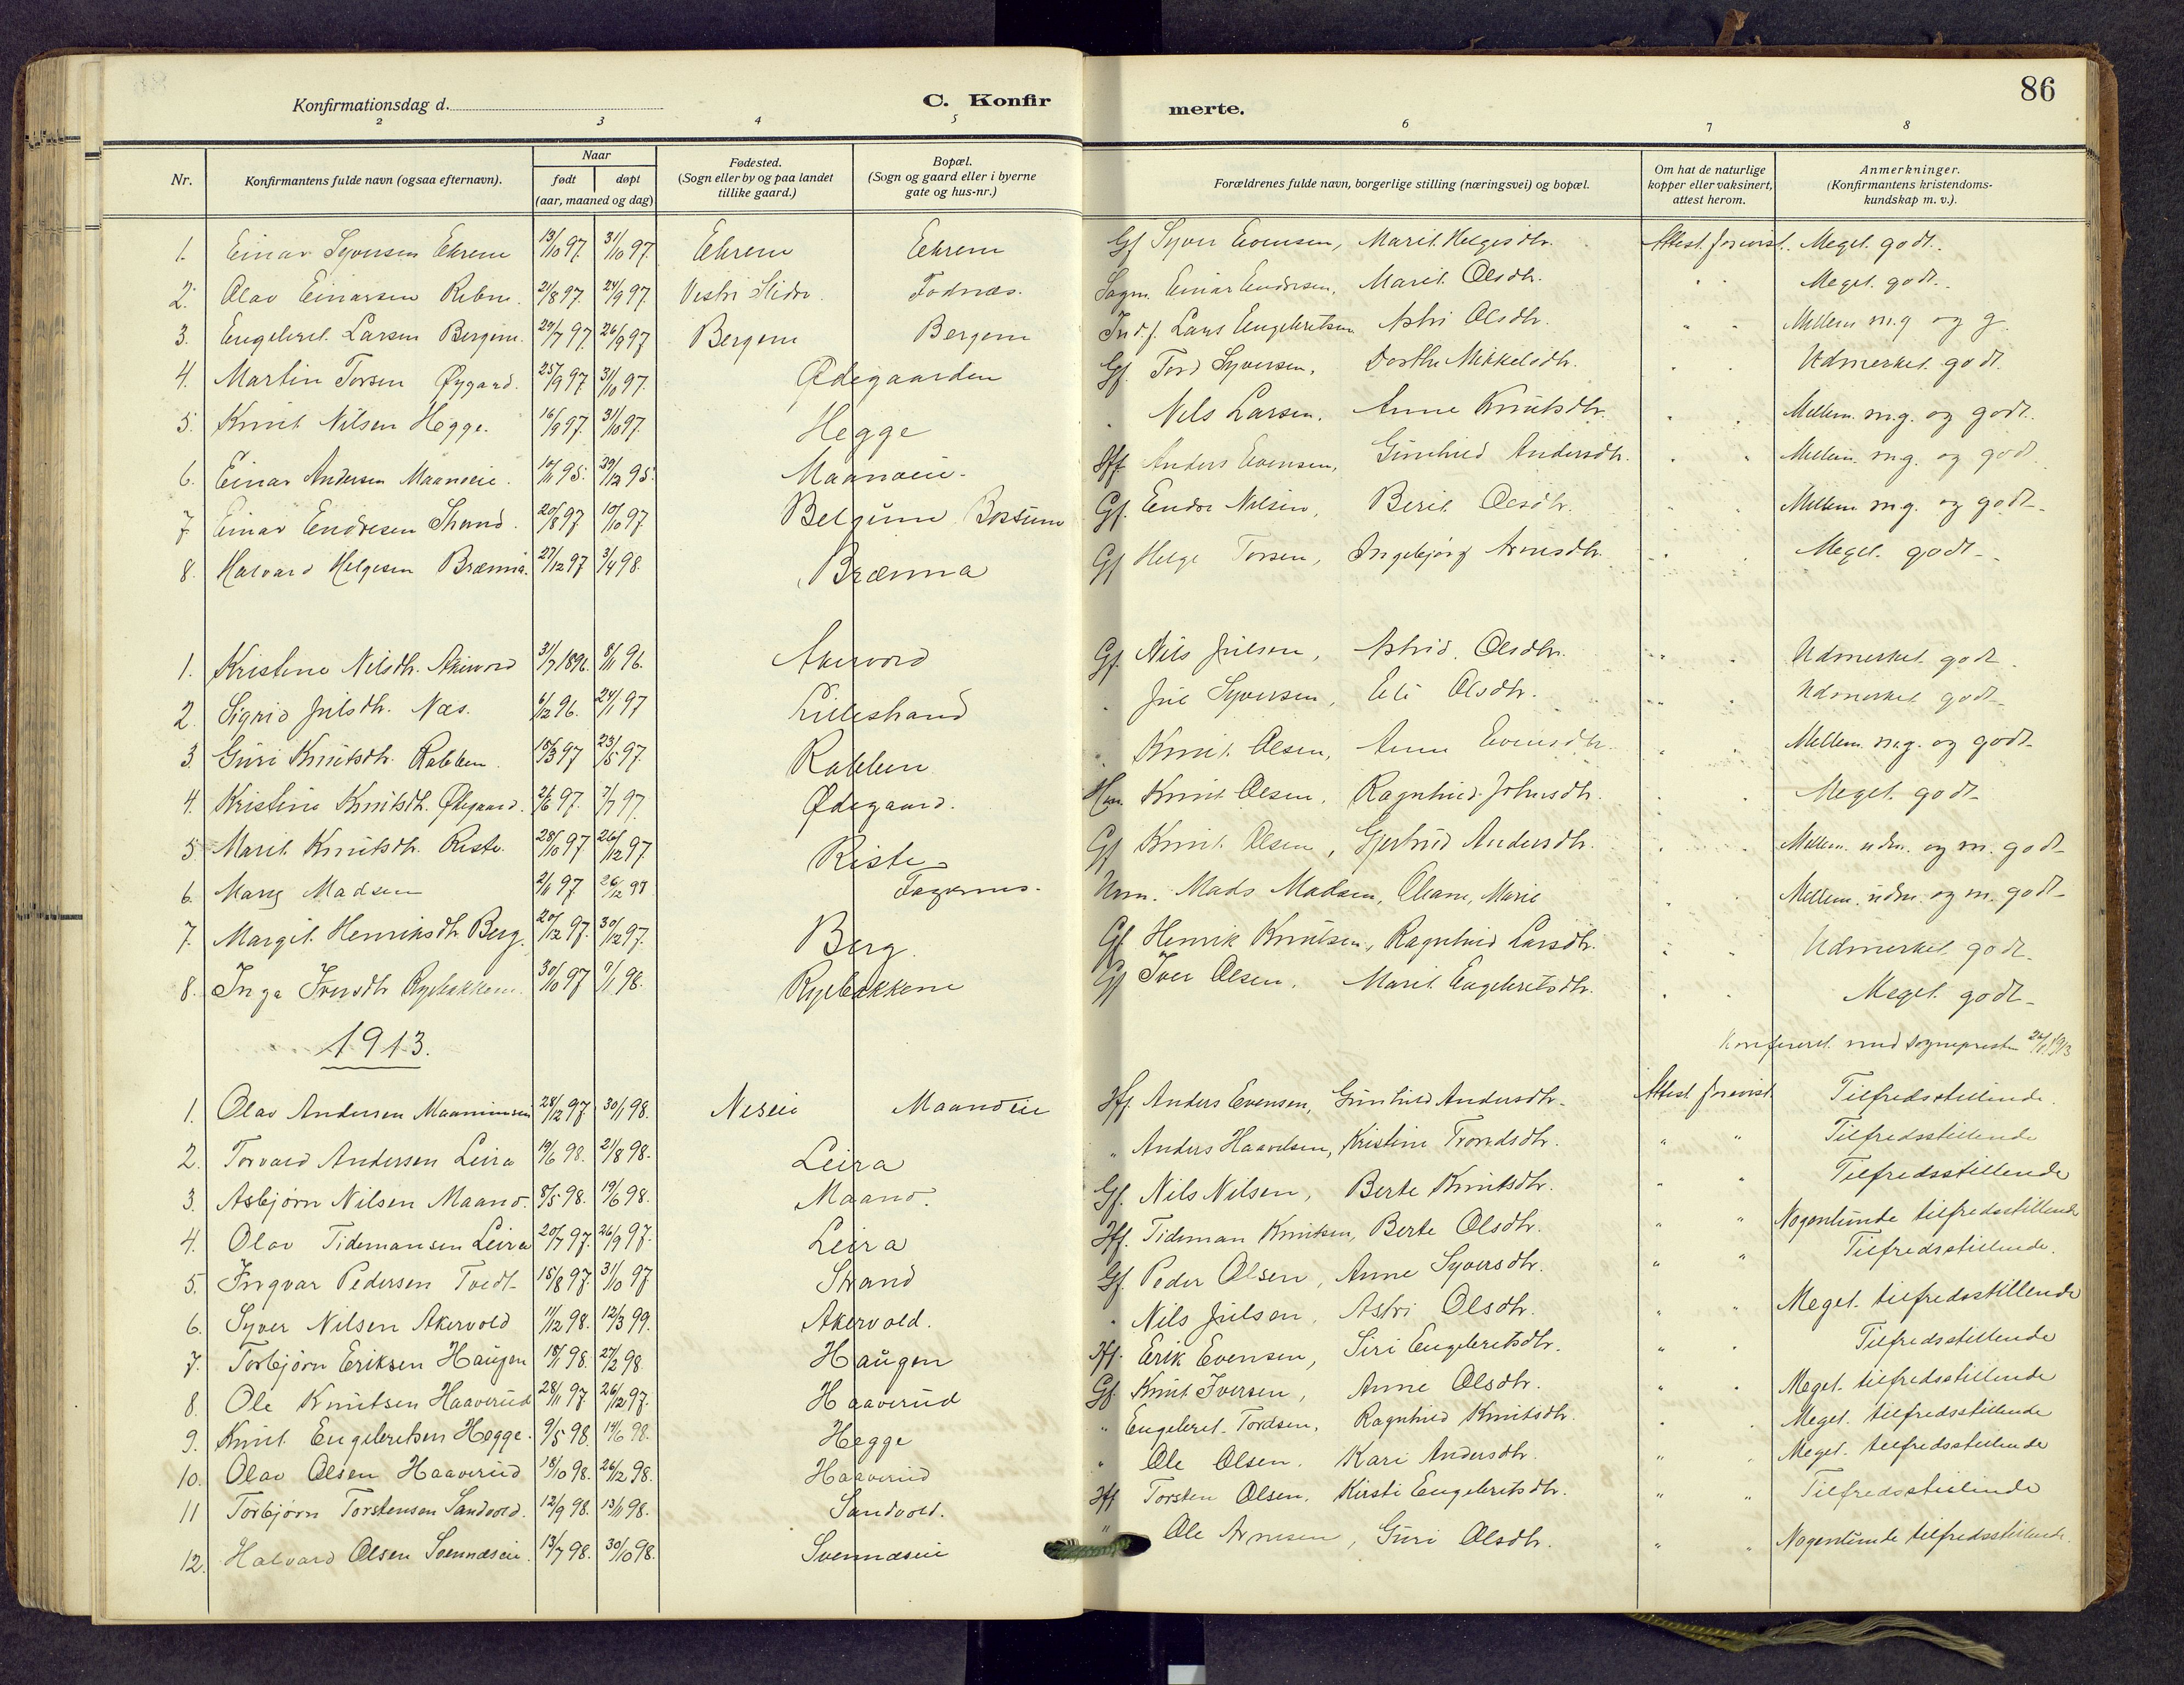 86
Konfirmationsdag d.
C. Konfir
merte.
2 3 4 5 6 7 8
Nr.
Konfirmantens fulde navn (ogsaa efternavn).
Naar
født døpt
(aar, maaned og dag)
Fødested.
(Sogn eller by og paa landet
tillike gaard.)
Bopæl.
(Sogn og gaard eller i byerne
gate og hus-nr.)
Forældrenes fulde navn, borgerlige stilling (næringsvei) og bopæl.
Om hat de naturlige
kopper eller vaksinert,
attest herom.
Anmerkninger.
(Konfirmantens kristendoms-
kundskap m. v.).
1. Einar Syversen Ekren 13/10 97. 31/10 97. Ekren Ekren Gf Syver Evensen, Marit Helgesdtr. Attest forevist. Meget godt.
2. Olav Einarsen 21/8 97. 24/9 97. Vestri Slidre. Fodnæs. Sagm. Einar Endresen, Marit Olsdtr. " " Meget godt.
3. Engebret Larsen Bergene. 29/7 97. 26/9 97 Bergene Bergene Ind.f. Lars Engebretsen Astri Olsdtr. " " Mellem m.g og g.
4. Martin Torsen Øygard. 25/9 97 31/10 97. Ødegaarden Gf. Tord Syversen, Dorthe Mikkelsdtr. " " Udmerket godt.
5. Knut Nilsen Hegge. 16/9 97. 31/10 97. Hegge " Nils Larsen. Anne Knutsdtr. " " Mellem m.g. og godt.
6. Einar Andersen Maaneie. 10/11 95. 29/12 95. Maanoeie. Hff Anders Evensen, Gunhild Andersdtr. " " Mellem m.g. og godt.
7. Einar Endresen Strand. 20/8 97 10/10 97. Belgum Bossum Gf. Endre Nilsen, Berit Olsdtr. " " Mellem m.g. og godt.
8. Halvard Helgesen Brænna. 27/12 97 3/4 98. Brænna Gf Helge Torsen, Ingebjørg Arnesdtr. " " Meget godt.
1. Kristine Nilsdtr. Akervord 31/7 1896. 8/11 96. Akervord Gf Nils Julsen, Astrid Olsdtr. " " Udmerket godt.
2. Sigrid Julsdtr. Næs. 6/12 96. 24/1 97 Lillestrand " Jul Syversen, Eli Olsdtr. " " Udmerket godt.
3. Guri Knutsdtr. Robben. 18/3 97 23/5 97. Robben " Knut Olsen, Anne Evensdtr. " " Mellem m.g. og godt.
4. Kristine Knutsdtr. Ødegaard. 2/6 97. 7/7 97. Ødegaard. Hm Knut Olsen, Ragnhild Johnsdtr. " " Meget godt.
5. Marit Knutsdtr. Riste. 28/10 97 26/12 97. Riste Gf Knut Olsen, Gjertrud Andersdtr. " " Mellem udm. og m. godt.
6. Mary Madsen 2/11 97 26/12 97 Fagernes. Mads Madsen, Marie " " Mellem udm. og m. godt.
7. Margit Henriksdtr Berg. 20/12 97. 30/12 97. Berg. Gf Henrik Knutsen, Ragnhild Larsdtr. " " Udmerket godt.
8. Inga Iversdtr Ryebakkene. 30/10 97 9/1 98. Ryebakkene Gf Iver Olsen, Marit Engebretsdtr. " " Meget godt.
1913.
Konfereret med sognepresten 1913
1. Olav Andersen 28/12 97 30/1 98. Neseie Maanoeie Hff. Anders Evensen, Gunhild Andersdtr. Attest forevist. Tilfredsstillende.
2. Torvald Andersen Leira 19/6 98. 21/8 98. Leira " Anders Haavelsen, Kristine Trondsdtr. " " Tilfredsstillende
3. Asbjørn Nilsen Maanø. 8/5 98. 19/6 98. Maanø. Gf. Nils Nilsen, Berte Knutsdtr. " " Tilfredsstillende
4. Olav Tidemansen Leira 20/7 97. 26/9 97. Leira Hff. Tideman Knutsen, Berte Olsdtr. " " Nogenlunde tilfredsstillende
5. Ingvar Pedersen Tvedt. 15/8 97. 31/10 97 Strand Gf. Peder Olsen, Anne Syversdtr. " " Tilfredsstillende.
6. Syver Nilsen Akervold 11/12 98. 12/3 99. Akervold. " Nils Julsen, Astri Olsdtr. " " Meget tilfredsstillende
7. Torbjørn Eriksen Haugen 18/1 98. 27/2 98. Haugen Hff. Erik Evensen, Siri Engebretsdtr. " " Tilfredsstillende
8. Ole Knutsen Haaverud 28/11 97. 26/12 97. Haaverud Gf. Knut Iversen, Anne Olsdtr. " " Meget tilfredsstillende
9. Knut Engebretsen Hegge. 9/5 98. 19/6 98. Hegge " Engebret Tordsen, Ragnhild Knutsdtr. " " Meget tilfredsstillende
10. Olav Olsen Haaverud 18/10 98. 26/12 98. Haaverud " Ole Olsen. Kari Andersdtr. " " Meget tilfredsstillende
11. Torbjørn Torstensen Sandvold. 12/9 98. 13/11 98. Sandvold. Hff Torsten Olsen, Kirsti Engebretsdtr. " " Tilfredsstillende
12. Halvard Olsen Svennæseie. 13/7 98. 30/10 98. Svennæseie " Ole Arnesen, Guri Olsdtr. " " Nogenlunde tilfredsstillende.